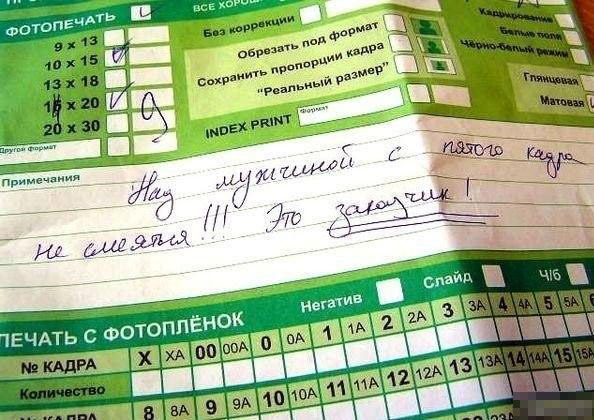 ВСЕ ХОРОШ
ФОТОПЕЧАТЬ
9 x 13
10 x 15
13 x 18
15 x 20 9
20 x 30
Другой формат
Без коррекции
Обрезать под формат
Сохранить пропорции кадра
"Реальный размер"
INDEX PRINT Формат
Кадрирование
Белые поля
Чёрно-белый режим
Глянцевая
Матовая
Примечания
Над мужчиной с пятого кадра
не смеяться!!! Это заказчик!
Негатив Слайд Ч/б
ПЕЧАТЬ С ФОТОПЛЁНОК
№ КАДРА X XA 00 00A 0 0A 1 1A 2 2A 3 3A 4 4A 5 5A 6
Количество
8 8A 9 9A 10 10A 11 11A 12 12A 13 13A 14 14A 15 15A